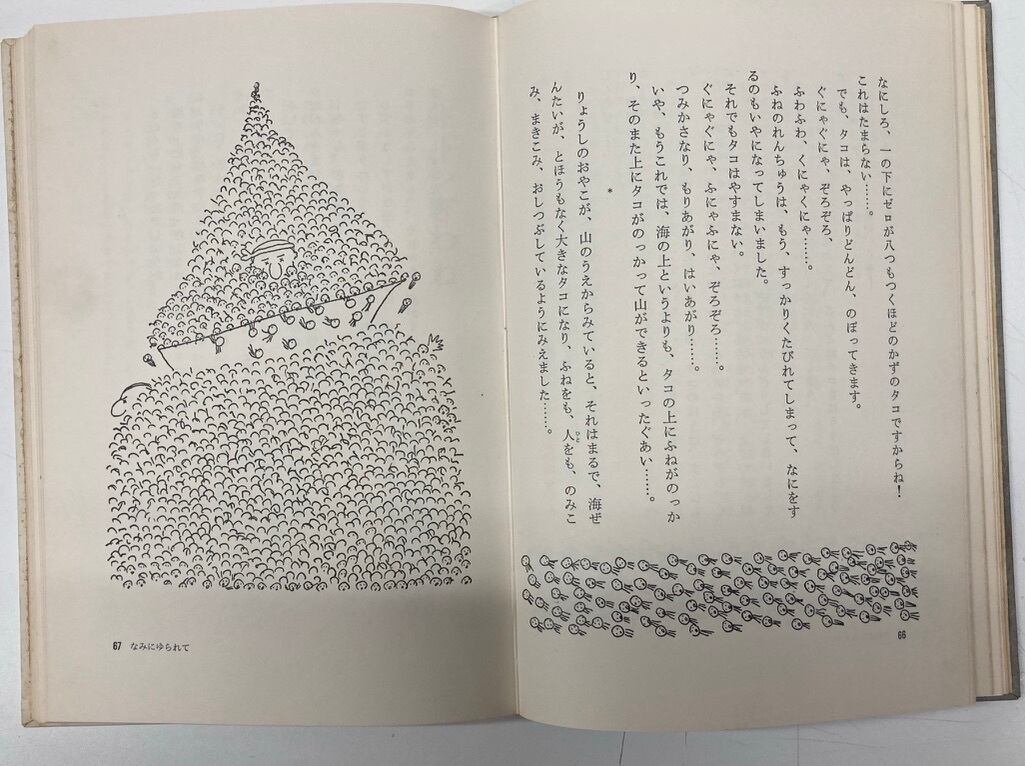 なにしろ、一の下にゼロが八つもつくほどのかずのタコですからね！
これはたまらない……。
でも、タコは、やっぱりどんどん、のぼってきます。
ぐにゃぐにゃ、ぞろぞろ、
ふわふわ、くにゃくにゃ……。
ふねのれんちゅうは、もう、すっかりくたびれてしまって、なにをす
るのもいやになってしまいました。
それでもタコはやすまない。
ぐにゃぐにゃ、ふにゃふにゃ、ぞろぞろ……。
つみかさなり、もりあがり、はいあがり……。
いや、もうこれでは、海の上というよりも、タコの上にふねがのっか
り、そのまた上にタコがのっかって山ができるといったぐあい……。
*
りょうしのおやこが、山のうえからみていると、それはまるで、海ぜ
んたいが、とほうもなく大きなタコになり、ふねをも、人をも、のみこ
ひと
み、まきこみ、おしつぶしているようにみえました……。
66
67 なみにゆられて